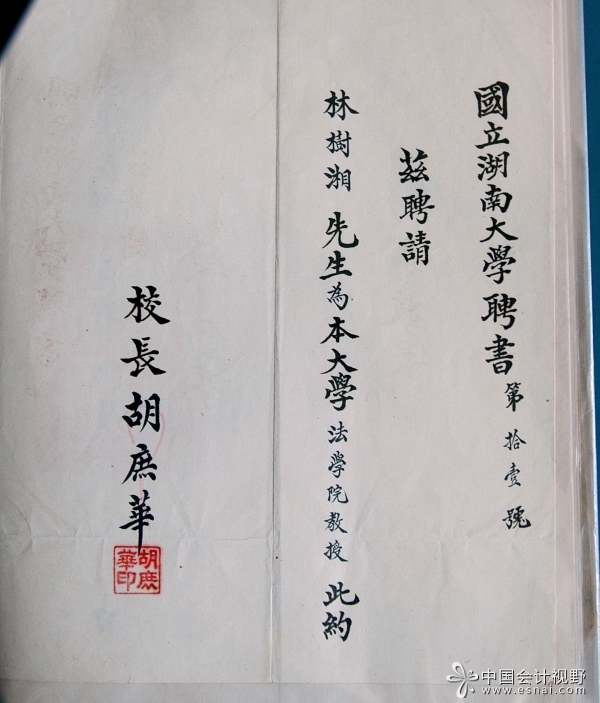 國立湖南大學聘書第拾壹號
茲聘請
林樹湘先生為本大學法學院教授此約
校長胡庶華
胡庶華印
中国会计视野
www.esnai.com